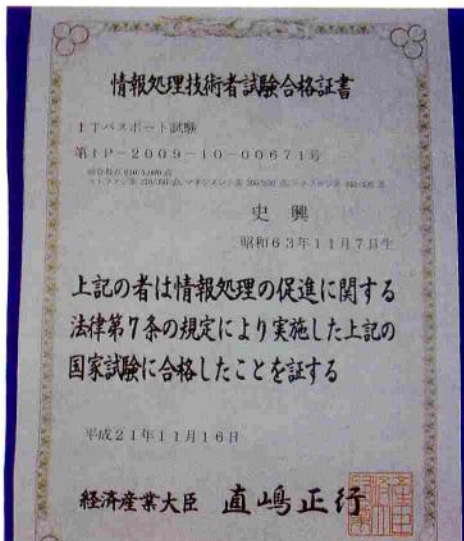 情報処理技術者試験合格証書
ITパスポート試験
第IP-2009-10-00671号
史 興
昭和63年11月7日生
上記の者は情報処理の促進に関する
法律第7条の規定により実施した上記の
国家試験に合格したことを証する
平成21年11月16日
経済産業大臣 直嶋正行